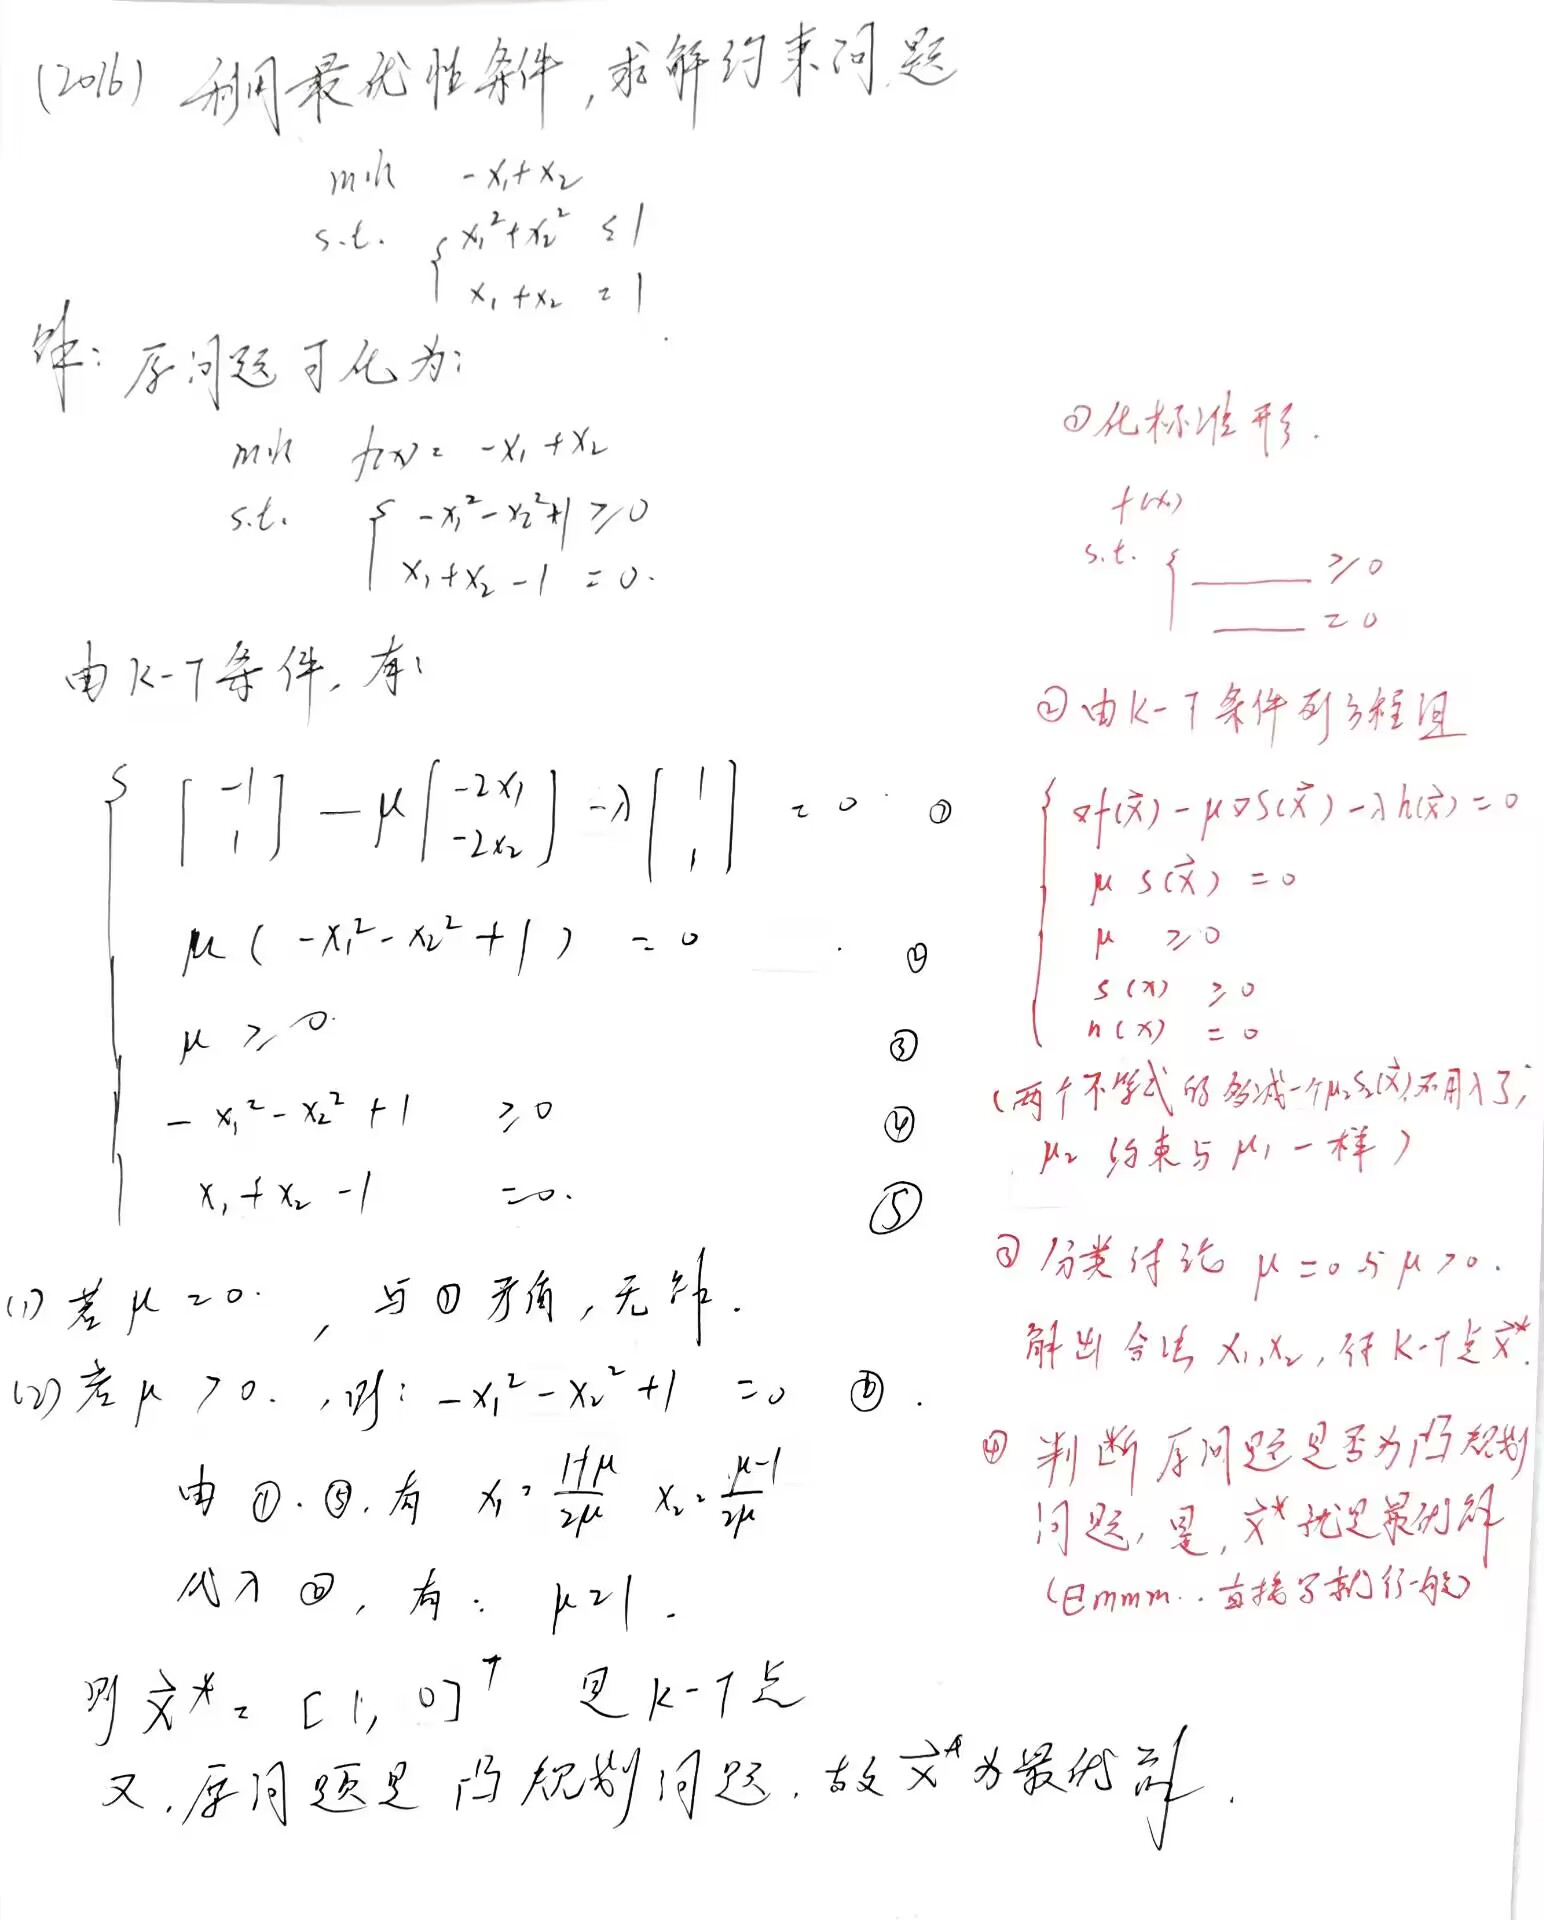 (2016) 利用最优性条件,求解约束问题
min -x₁+x₂
s.t. { x₁²+x₂² ≤ 1
x₁+x₂ = 1
解: 原问题可化为:
min f(x) = -x₁+x₂
s.t. { -x₁²-x₂²+1 ≥ 0
x₁+x₂-1 = 0.
由K-T条件, 有:
{ [-1 1] - μ[-2x₁ -2x₂] - λ[1 1] = 0 ①
μ(-x₁²-x₂²+1) = 0 ②
μ ≥ 0. ③
-x₁²-x₂²+1 ≥ 0 ④
x₁+x₂-1 = 0. ⑤
(1) 若 μ=0. , 与①矛盾, 无解.
(2) 若 μ>0. , 则: -x₁²-x₂²+1 = 0 ⑥.
由①.⑤.有 x₁ = (1+μ)/2μ x₂ = (μ-1)/2μ
代入⑥, 有: μ=1.
则 x⃗* = [1, 0]ᵀ 是K-T点
又,原问题是凸规划问题,故x⃗*为最优解.
①化标准形.
f(x)
s.t. { ____ ≥ 0
____ = 0
②由K-T条件列方程组
{ ∇f(x⃗) - μ∇S(x⃗) - λh(x⃗) = 0
μ S(x⃗) = 0
μ ≥ 0
S(x) ≥ 0
h(x) = 0
(两个不等式的多减一个μ₂S₂(x⃗),不用λ了;
μ₂ 约束与μ₁一样)
③分类讨论 μ=0与μ>0.
解出合法 x₁,x₂, 得K-T点x⃗*.
④判断原问题是否为凸规划
问题, 是, x⃗*就是最优解
(Emmm..直接写就行一般)